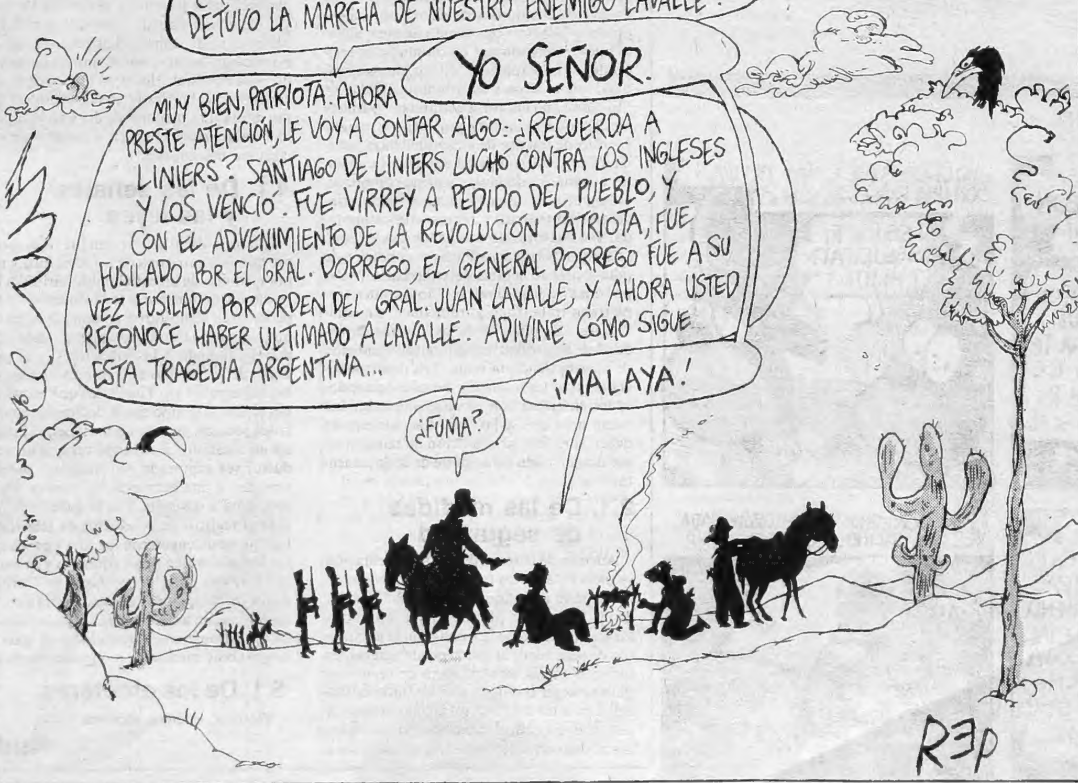 DETUVO LA MARCHA DE NUESTRO ENEMIGO LAVALLE?
YO SEÑOR.
MUY BIEN, PATRIOTA. AHORA
PRESTE ATENCIÓN, LE VOY A CONTAR ALGO: ¿RECUERDA A
LINIERS? SANTIAGO DE LINIERS LUCHÓ CONTRA LOS INGLESES
Y LOS VENCIÓ. FUE VIRREY A PEDIDO DEL PUEBLO, Y
CON EL ADVENIMIENTO DE LA REVOLUCIÓN PATRIOTA, FUE
FUSILADO POR EL GRAL. DORREGO, EL GENERAL DORREGO FUE A SU
VEZ FUSILADO POR ORDEN DEL GRAL. JUAN LAVALLE, Y AHORA USTED
RECONOCE HABER ULTIMADO A LAVALLE. ADIVINE CÓMO SIGUE
ESTA TRAGEDIA ARGENTINA...
¡MALAYA!
¿FUMA?
REP